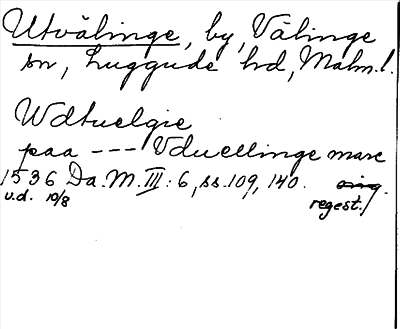 Utvälinge, by, Välinge
sn, Luggude hd, Malm.l.
Wdtuelgie
paa --- Vduellinge marc
1536 Da.M.III:6, ss.109, 140. orig.
u.d. 10/8 regest.